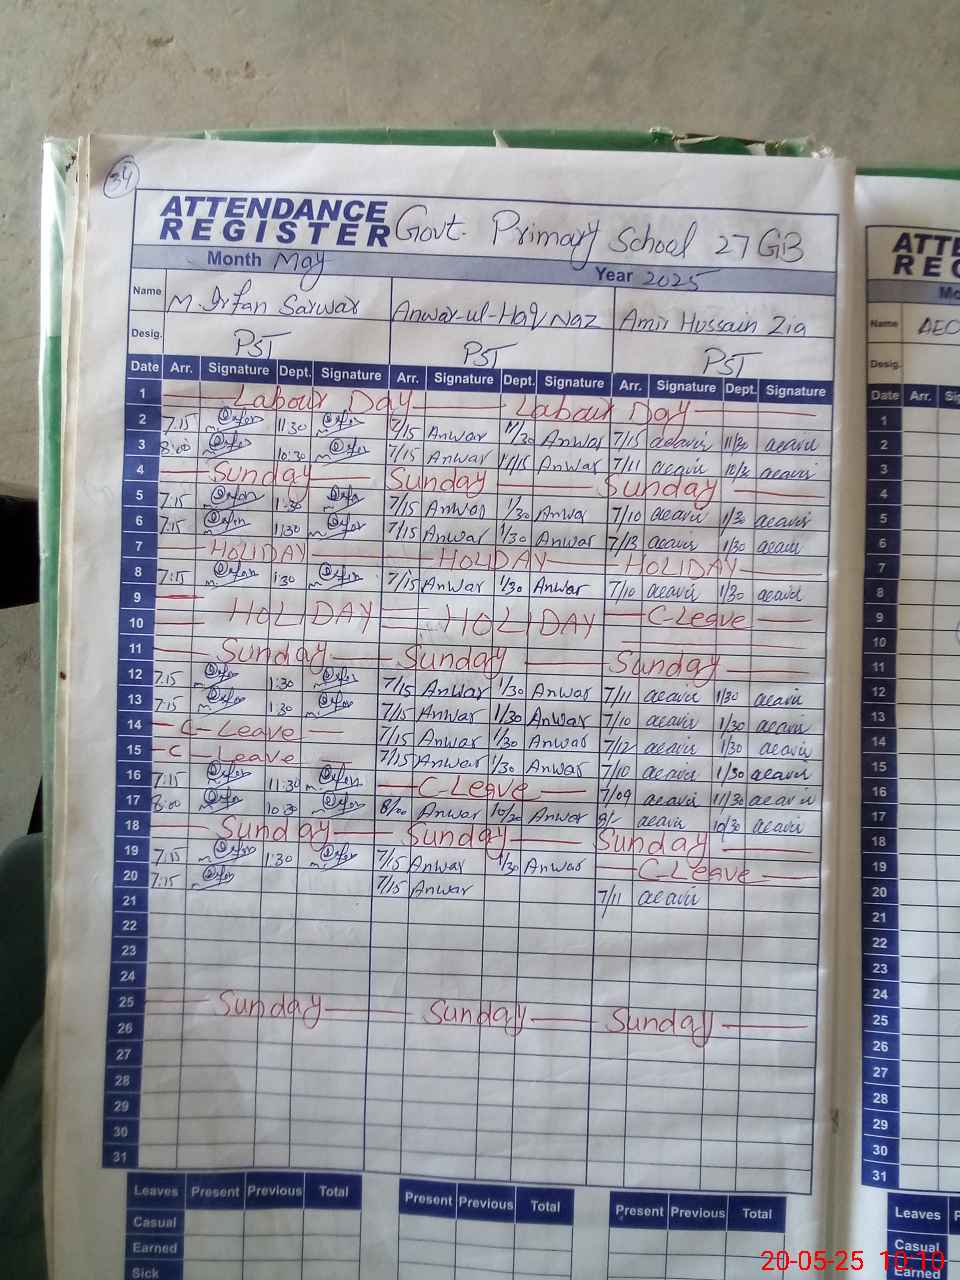 34
ATTENDANCE REGISTER Govt. Primary School 27 GB
Month May Year 2025
Name M. Irfan Sarwar Anwar-ul-Haq Naz Amir Hussain Zia
Desig. PST PST PST
Date Arr. Signature Dept. Signature Arr. Signature Dept. Signature Arr. Signature Dept. Signature
1 Labour Day Labour Day
2 7:15 11:30 7/15 Anwar 11/30 Anwar 7/15 11/30
3 8:00 10:30 7/15 Anwar 11/15 Anwar 7/11
4 Sunday Sunday Sunday
5 7:15 1:30 7/15 Anwar 1/30 Anwar 7/10 1/30
6 7:15 1:30 7/15 Anwar 1/30 Anwar 7/13 1/30
7 HOLIDAY HOLIDAY HOLIDAY
8 7:15 1:30 7/15 Anwar 1/30 Anwar 7/10 1/30
9 HOLIDAY HOLIDAY C-Leave
10
11 Sunday Sunday Sunday
12 7:15 1:30 7/15 Anwar 1/30 Anwar 7/11 1/30
13 7:15 1:30 7/15 Anwar 1/30 Anwar 7/10 1/30
14 C-Leave 7/15 Anwar 1/30 Anwar 7/12 1/30
15 C-Leave 7/15 Anwar 1/30 Anwar 7/10 1/30
16 7:15 11:30 C-Leave 7/09 11/30
17 8:00 10:30 8/00 Anwar 10/30 Anwar 10/30
18 Sunday Sunday Sunday
19 7:15 1:30 7/15 Anwar 1/30 Anwar C-Leave
20 7:15 7/15 Anwar 7/11
21
22
23
24
25 Sunday Sunday Sunday
26
27
28
29
30
31
Leaves Present Previous Total Present Previous Total Present Previous Total
Casual
Earned
Sick
Name AEO
Desig.
Date Arr.
1
2
3
4
5
6
7
8
9
10
11
12
13
14
15
16
17
18
19
20
21
22
23
24
25
26
27
28
29
30
31
Leaves
Casual
Earned
20-05-25 10:10